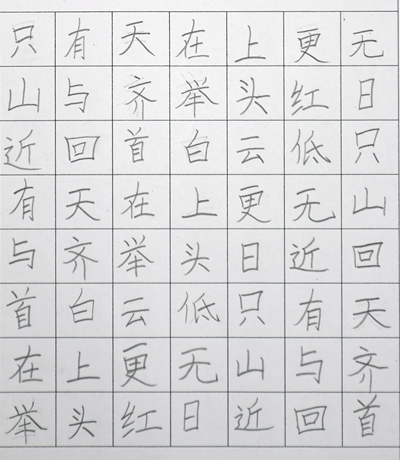 只有天在上更无
山与齐举头红日
近回首白云低只
有天在上更无山
与齐举头日近回
首白云低只有天
在上更无山与齐
举头红日近回首